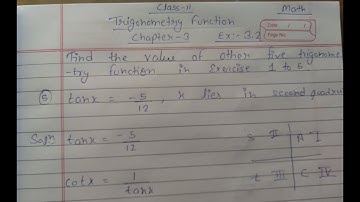 Class-11 Math
Trigonometry function
Chapter-3 Ex:- 3.2
Date / /
Page No.
Find the value of other five trigonome
-try function in Exercise 1 to 5
⑤ tanx = -5/12, x lies in second quadra
Soln. tanx = -5/12
S II | A I
cotx = 1/tanx t III | C IV